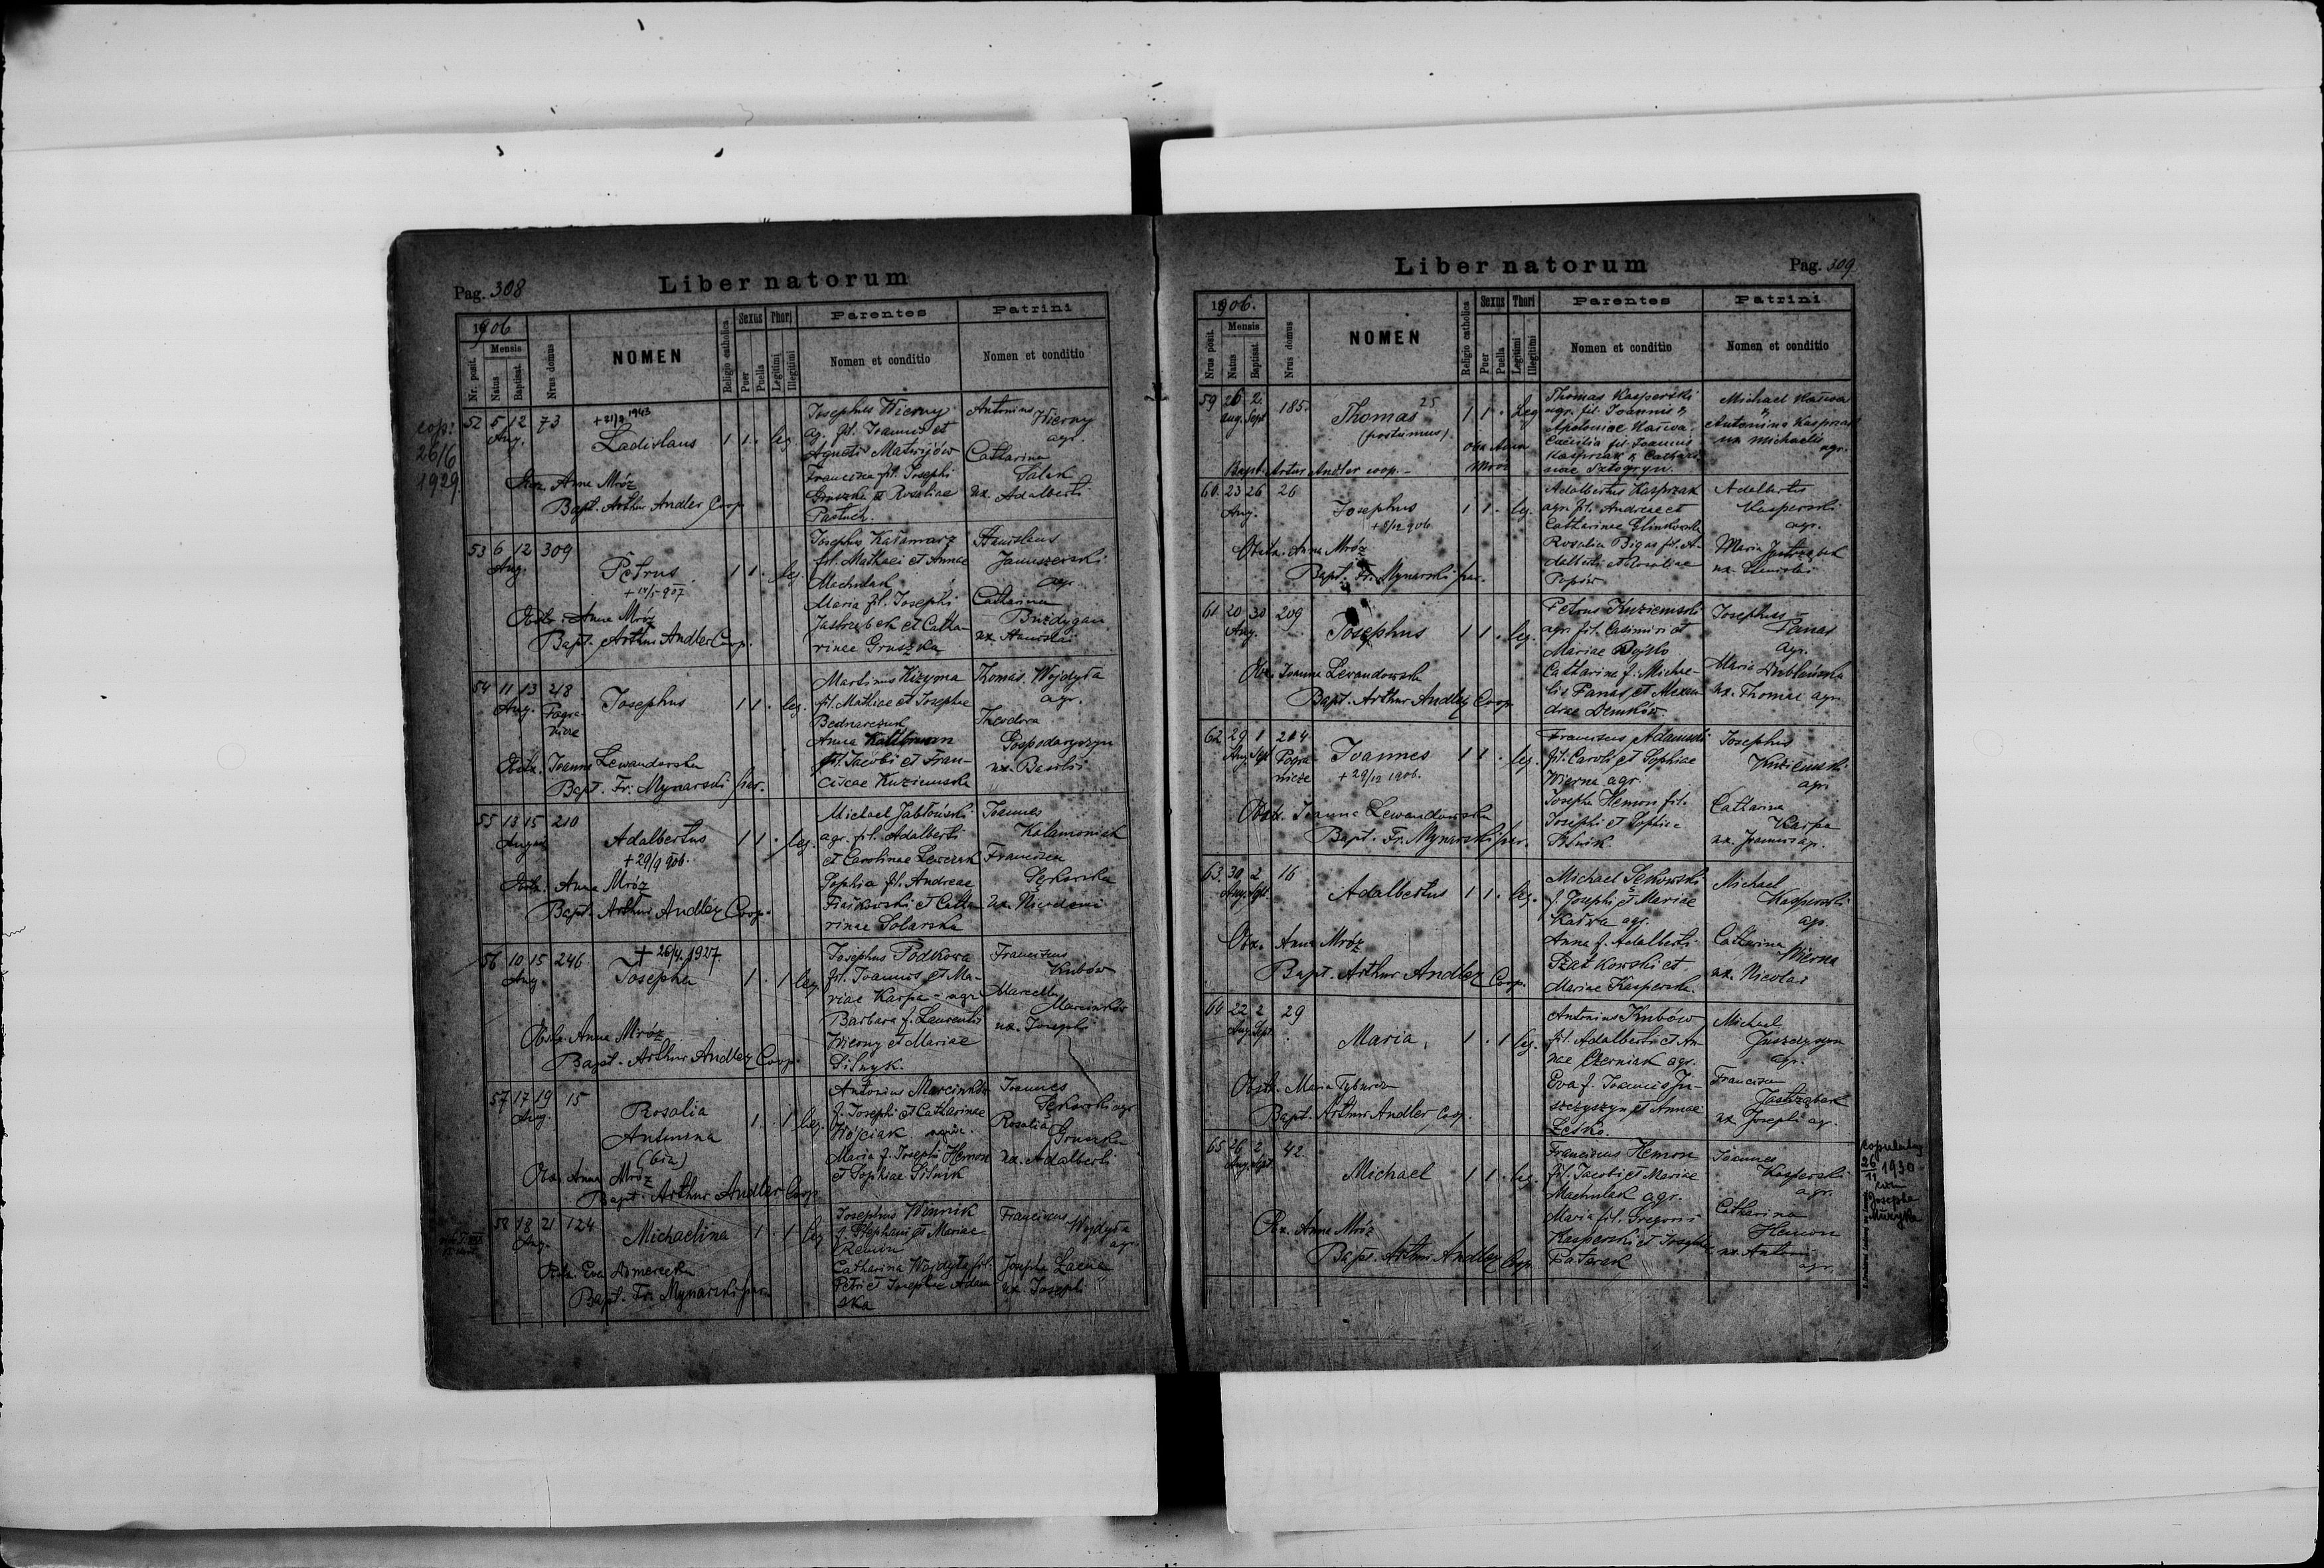 Pag. 308
Liber natorum
1906
Nr. posit.
Mensis
Natus
Baptisat.
Nrus domus
NOMEN
Religio catholica
Sexus
Puer
Puella
Thori
Legitimi
Illegitimi
Parentes
Nomen et conditio
Patrini
Nomen et conditio
cop:
26/6
1929
52 5 12 73
Aug.
1943
Ladislaus
1 1 . leg.
Josephus Wierny
ag. fil. Joannis et
Agnetis Matwijów
Francisca fil. Josephi
Gruszka et Rosaliae
Pastuch.
Antonius
Wierny
agr.
Catharina
Salak
ux. Adalberti
Obst. Anna Mróz
Bapt. Arthur Andler Coop.
53 6 12 309
Aug.
Petrus
Josephus Kałamarz
fil. Mathaei et Annae
Machulak
Maria fil. Josephi
Jastrzębek et Catha-
rinae Gruszka
1 1 . leg.
Stanislaus
Januszewski
agr.
Catharina
ux. Stanislai
Obstr. Anna Mróz
Bapt. Arthur Andler Coop.
54 11 13 218
Aug. Pogra-
nicze
Josephus
1 1 . leg.
Martinus Kizyma
fil. Mathiae et Josephae
Bednarczuk
Anna
fil. Jacobi et Fran-
ciscae Kuziemska
Thomas Wojdyła
agr.
Theodora
Gospodaryszyn
ux. Basilii
Obstr. Joanna Lewandowska
Bapt. Fr. Mynarski par.
55 13 15 210
August
Adalbertus
+ 29/9 906.
1 1 . leg.
Michael Jabłoński
agr. fil. Adalberti
et Carolinae Lewczak
Sophia fil. Andreae
et Catha-
rinae Solarska
Joannes
Kalamoniak
Francisca
Sękowska
ux. Nicodemi
Obstr. Anna Mróz
Bapt. Arthur Andler Coop.
56 10 15 246
Aug.
+ 26/4. 1927.
Josepha
1 . 1 leg.
Josephus Podkowa
fil. Joannis et Ma-
riae Karpa - agr.
Barbara f. Laurentii
Wierny et Mariae
Franciscus
Kubów
Marcella
Marcinków
ux. Josephi
Obstr. Anna Mróz
Bapt. Arthur Andler Coop.
57 17 19 15
Aug.
Rosalia
Antonina
(bin)
1 . 1 leg.
Antonius Marcinków
f. Josephi et Catharinae
Wójciak
Maria f. Josephi Hemon
et Sophiae Silnik
Joannes
Sękowski agr.
Rosalia
Gruszka
ux. Adalberti
Obs. Anna Mróz
Bapt. Arthur Andler Coop.
58 18 21 124
Aug.
Michaelina
1 . 1 leg.
Josephus Winnik
f. Stephani et Mariae
Catharina Wojdyła fil.
Petri et Josephae Adam
ska
Franciscus
Wojdyła
agr.
Josepha
ux. Josephi
Bapt. Fr. Mynarski par.
Liber natorum
Pag. 309
1906.
Nrus posit.
Mensis
Natus
Baptisat.
Nrus domus
NOMEN
Religio catholica
Sexus
Puer
Puella
Thori
Legitimi
Illegitimi
Parentes
Nomen et conditio
Patrini
Nomen et conditio
59 26 2. 185.
aug. Sept.
Thomas
(postumus)
1 1 . Leg
Thomas Kasperski
agr. fil. Joannis &
Apoloniae Kaśwa
Caecilia fil. Joannis
Kasprzak & Cathari
nae
Michael Kaśwa
&
Antonina Kasprzak
ux Michaelis
agr.
obs. Anna
Mroz
Bapt. Artur Andler coop.
60. 23 26 26
Aug.
Josephus
1 1 . leg.
Adalbertus Kasprzak
agr. fil. Andreae et
Catharinae Glinkowska
Rosalia Bigas fil. A-
dalberti et Rosaliae
Popów
Adalbertus
Kasperski
agr.
Maria Jastrząbek
ux. Stanislai
Obstr. Anna Mróz
Bapt. Fr. Mynarski par.
61 20 30 209
Aug.
Josephus
1 1 . leg.
Petrus Kuziemski
agr. fil. Casimiri et
Mariae
Catharina f. Michae-
lis Panas et Alexan-
drae Demków
Josephus
Panas
agr.
Maria Dublańska
ux. Thomae agr.
Obs. Joanna Lewandowska
Bapt. Arthur Andler Coop.
62 29 1 214
Aug Sept Pogra-
nicze
Joannes
+ 29/12 1906.
1 1 . leg.
Franciscus Adamski
fil. Caroli et Sophiae
Wierna agr.
Josepha Hemon fil.
Josephi et Sophiae
Silnik.
Josephus
Kuziemski
agr.
Catharina
Karpa
ux. Joannis ag.
Obstr. Joanna Lewandowska
Bapt. Fr. Mynarski par.
63. 30 2 16
Aug. Sept.
Adalbertus
1 1 . leg.
Michael Sękowski
f. Josephi et Mariae
Kaśwa agr.
Anna f. Adalberti
Szatkowski et
Mariae Kasperska.
Michael
Kasperski
agr.
Catharina
Wierna
ux. Nicolai
Obs. Anna Mróz
Bapt. Arthur Andler Coop.
64 22 2 29
Aug. Sept.
Maria
1 . 1 leg.
Antonius Kubów
fil. Adalberti et An-
nae Czerniak agr.
Eva f. Joannis Ju-
szczyszyn et Annae
Leśko.
Michael
Juszczyszyn
agr.
Francisca
Jastrząbek
ux Josephi agr.
Obstr. Maria
Bapt. Arthur Andler Coop.
65 26 2 42
Aug. Sept.
Michael
1 1 . leg.
Franciscus Hemon
fil. Jacobi et Mariae
Machulak agr.
Maria fil. Gregorii
Kasperski et Josephae
Patorak
Joannes
Kasperski
agr.
Catharina
Hemon
ux. Antonii
agr.
Obs. Anna Mróz
Bapt. Arthur Andler Coop.
copulatus
26
11 1930
cum
Josepha